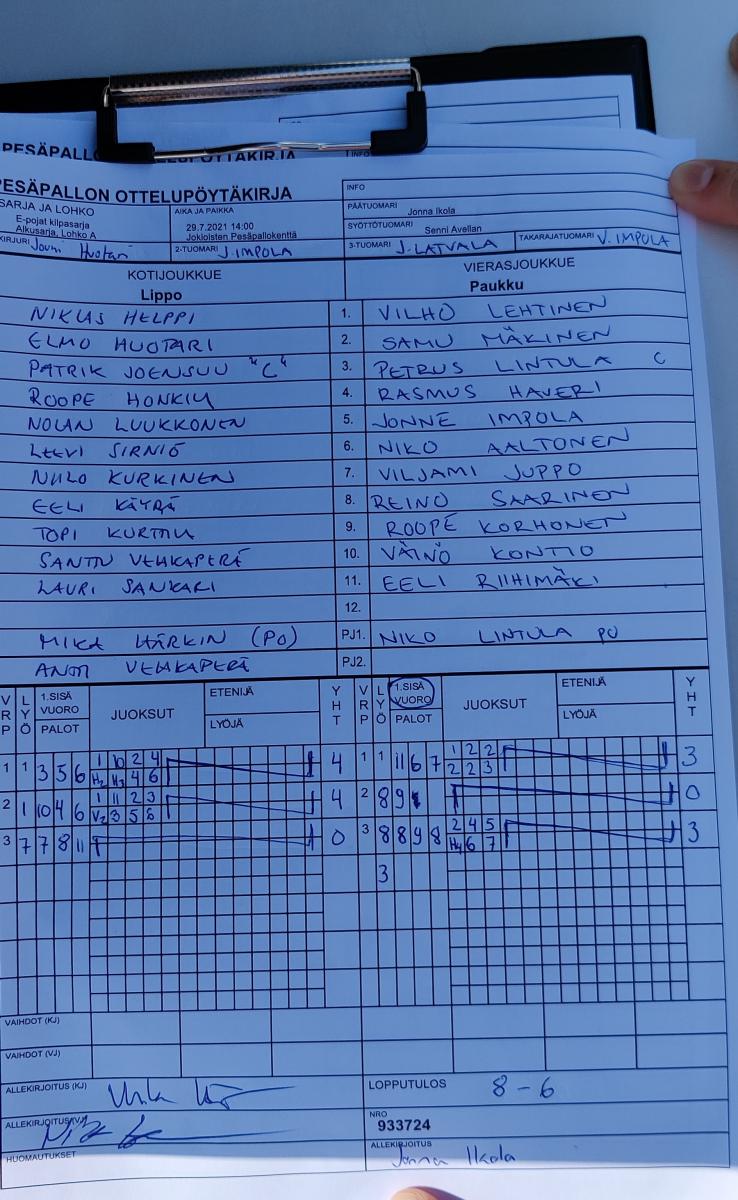 PESÄPALLON OTTELUPÖYTÄKIRJA
INFO
SARJA JA LOHKO
E-pojat kilpasarja
Alkusarja, Lohko A
AIKA JA PAIKKA
29.7.2021 14:00
Jokioisten Pesäpallokenttä
PÄÄTUOMARI Jonna Ikola
SYÖTTÖTUOMARI Senni Avellan
KIRJURI Jouni Huotari
2-TUOMARI J. IMPOLA
3-TUOMARI J. LATVALA
TAKARAJATUOMARI V. IMPOLA
KOTIJOUKKUE VIERASJOUKKUE
Lippo Paukku
NIKLAS HELPPI 1. VILHO LEHTINEN
ELMO HUOTARI 2. SAMU MÄKINEN
PATRIK JOENSUU "C" 3. PETRUS LINTULA C
ROOPE 4. RASMUS HAVERI
NOLAN LUUKKONEN 5. JONNE IMPOLA
LEEVI SIRNIÖ 6. NIKO AALTONEN
NIILO KURKINEN 7. VILJAMI JUPPO
EELI KÄYRÄ 8. REINO SAARINEN
TOPI KURTTILA 9. ROOPE KORHONEN
SANTTU VEHKAPERÄ 10. VÄINÖ KONTIO
LAURI SANKARI 11. EELI RIIHIMÄKI
12.
MIKA HÄRKIN (PO) PJ1. NIKO LINTULA PO
ANTTI VEHKAPERÄ PJ2.
VRP LYÖ 1.SISÄ VUORO PALOT JUOKSUT ETENIJÄ LYÖJÄ YHT VRP LYÖ 1.SISÄ VUORO PALOT JUOKSUT ETENIJÄ LYÖJÄ YHT
1 1 3 5 6 1 10 2 4 4 1 1 11 6 7 1 2 2 3
H2 H3 4 6 2 2 3
2 1 10 4 6 1 11 2 3 4 2 8 9 0
V2 3 5 6
3 7 7 8 11 0 3 8 8 9 8 2 4 5 3
H4 6 7
3
VAIHDOT (KJ)
VAIHDOT (VJ)
ALLEKIRJOITUS (KJ) LOPPUTULOS 8-6
ALLEKIRJOITUS (VJ) NRO 933724
HUOMAUTUKSET ALLEKIRJOITUS Jonna Ikola